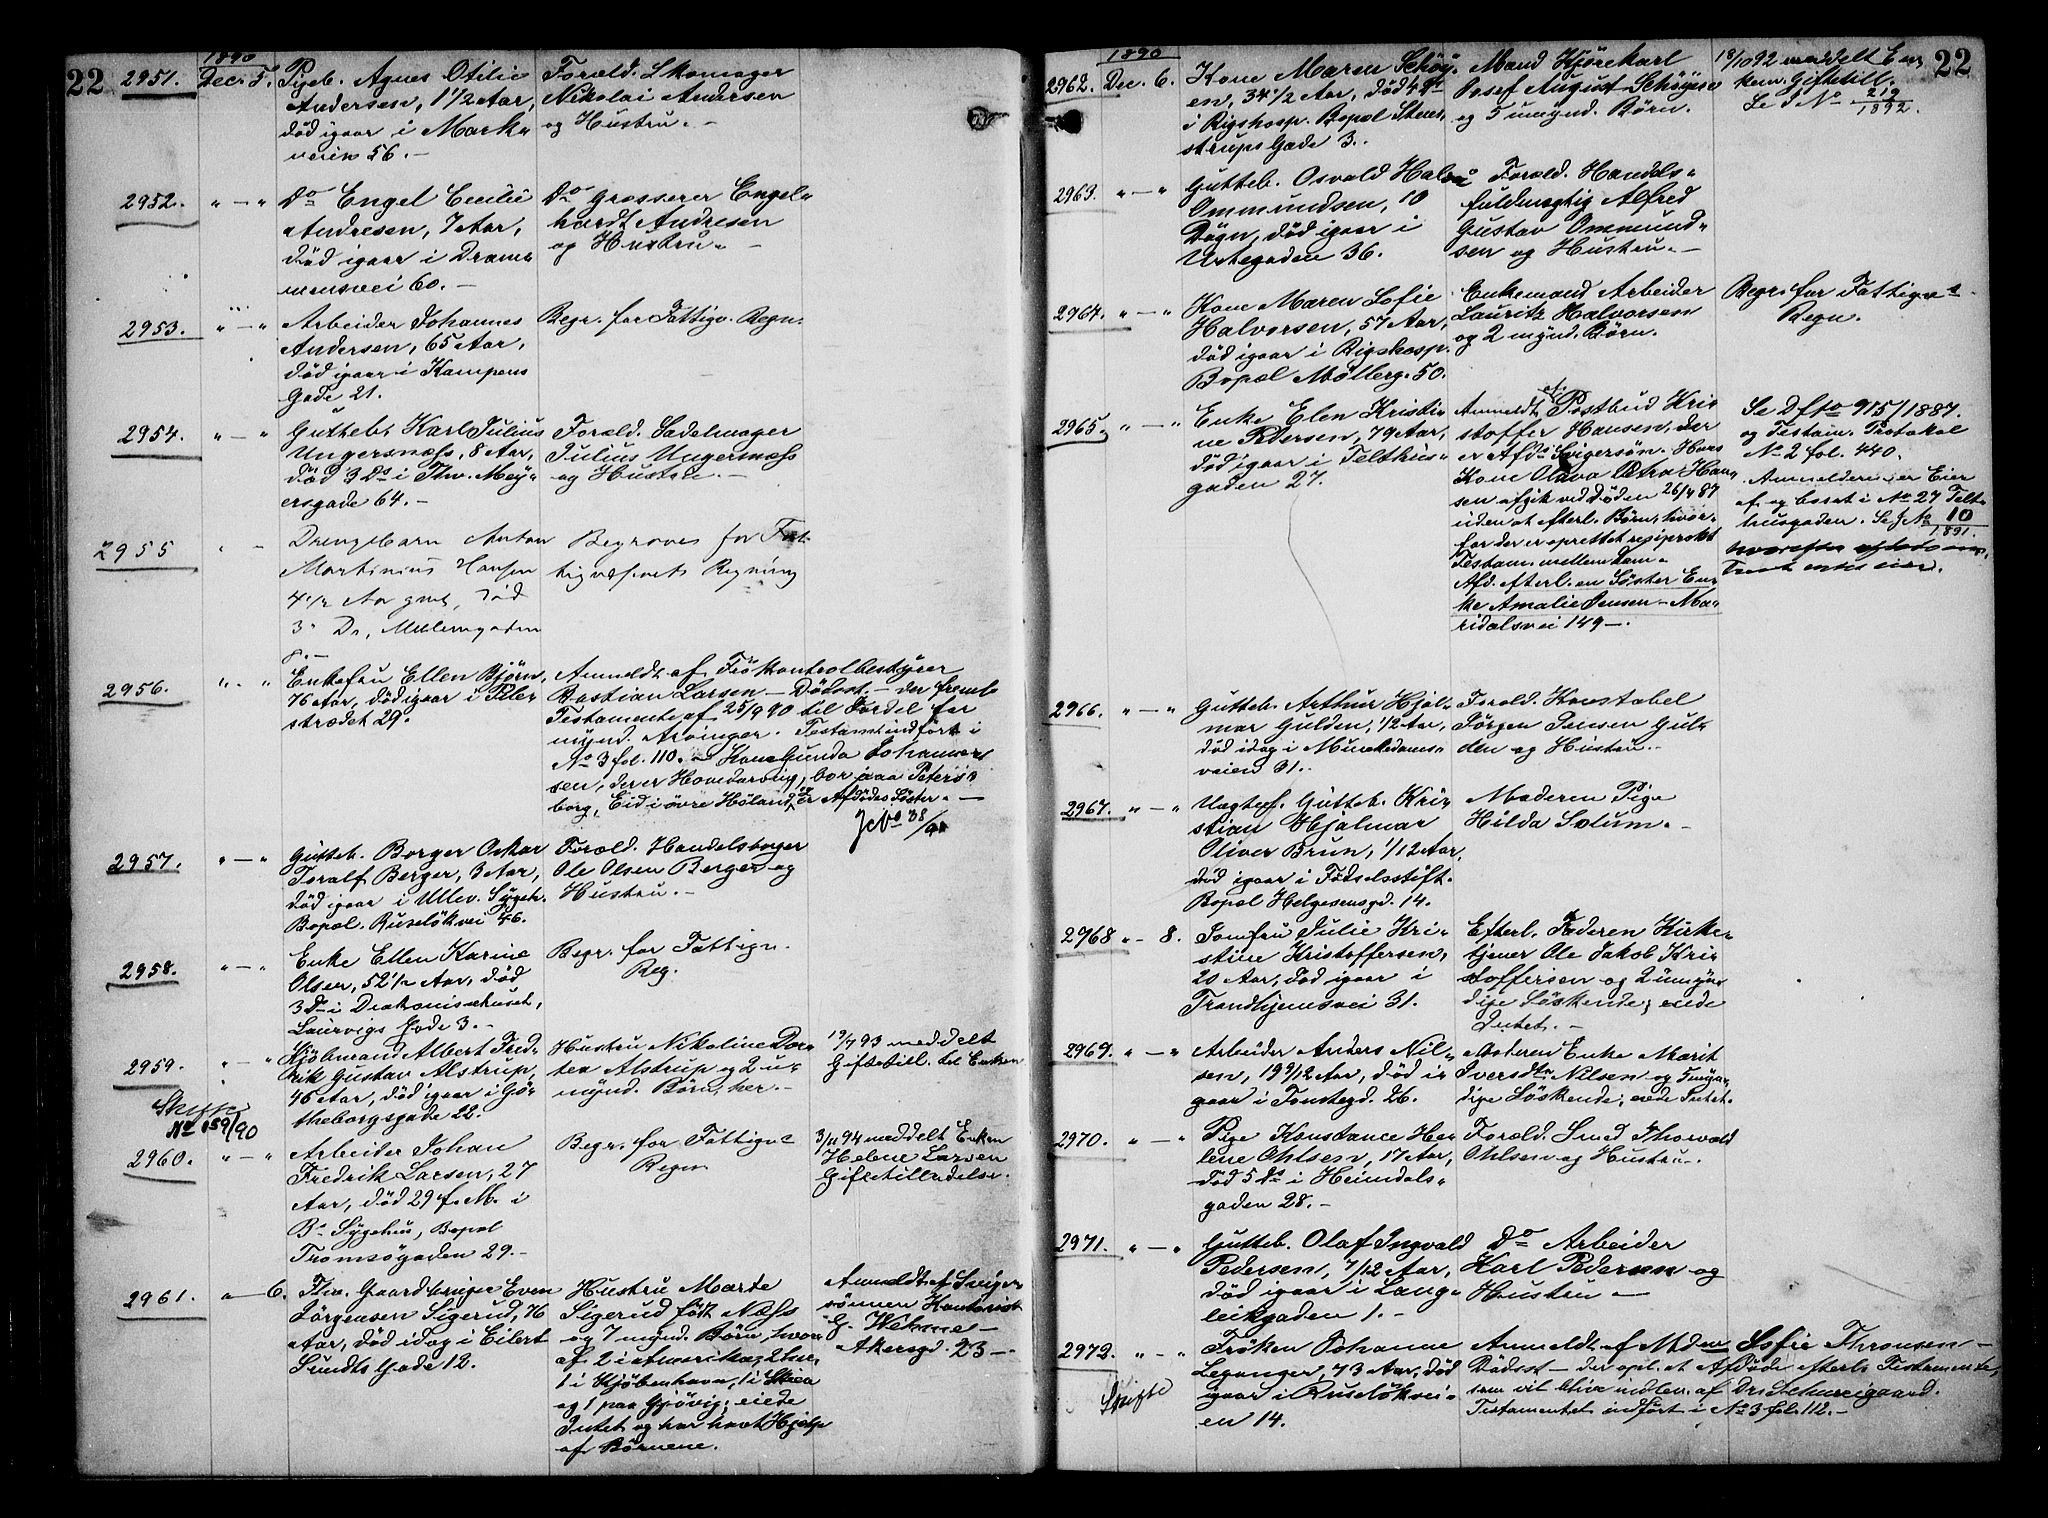 22
1890
2951. Decr. 5. Pigeb. Agnes Otilie
Andersen, 1 1/2 Aar,
død igaar i Mark-
veien 56. —
Foræld. Skomager
Nikolai Andersen
og Hustru. —
2952. " — " Do Engel Cecilie
Andresen, 7 Aar,
død igaar i Dram-
mensvei 60. —
Do Grosserer Engel-
hardt Andresen
og Hustru. —
2953. " — " Arbeider Johannes
Andersen, 65 Aar,
død igaar i Kampens
Gade 21.
Begr. for Fattigv. Regn.
2954. " — " Gutteb. Karl Julius
Ungersnæss, 8 Aar,
død 3 Ds i Thv. Mey-
ersgade 64. —
Foræld. Sadelmager
Julius Ungersnæss
og Hustru. —
2955 " — Drengebarn Anton
Martinius Hansen
4 1/2 Aar gml, død
3 Ds, Møllergaden
8. —
Begraves for Fat-
tigvæsenets Regning
2956. " — " Enkefru Ellen Bjørn,
76 Aar, død igaar i Piler
strædet 29.
Anmeldt af Frökontrolbestyrer
Bastian Larsen — Dødsst. — der fremla
Testamente af 25/9 90 til Fordel for
mynd. Arvinger. Testamt indført i
No 3 fol. 110. — Kone Gunda Johannes
sen, der er Hovedarving, bor paa Peters-
borg, Eid i övre Höland, og er Afdødes Söster. —
JNo 38/91
2957. " — " Gutteb. Borger Oskar
Toralf Berger, 3 Aar,
død igaar i Ullev. Sygeh.
Bopæl. Ruselökvei 46.
Foræld. Handelsborger
Ole Olsen Berger og
Hustru. —
2958. " — " Enke Ellen Karine
Olsen, 52 1/2 Aar, død
3 Ds i Diakonissehuset,
Laurvigs Gade 3. —
Begr. for Fattign.
Reg.
2959. " — " Kjøbmand Albert Fred-
rik Gustav Alstrup,
45 Aar, død igaar i Gö-
theborgsgade 22.
Hustru Nikoline Do-
tea Alstrup og 2 u-
mynd. Børn, her. —
19/7 93 meddelt
Giftetill. til Enken
Skifte
No 159/90
2960. " — " Arbeider Johan
Fredrik Larsen, 27
Aar, død 29 f. M. i
Bs Sygehus, Bopæl
Tromsögaden 29. —
Begr. for Fattigvs
Regn
3/11 94 meddelt Enken
Helene Larsen
Giftetilladelse.
2961. " — 6. Fhv. Gaardbruger Even
Jörgensen Sigerud, 76
Aar, død idag i Eilert
Sundts Gade 12.
Hustru Marte
Sigerud født Næss
og 7 mynd. Børn, hvor-
af 2 i Amerika, 2 her,
1 i Kjöbenhavn, 1 i
og 1 paa Gjövig; eiede
Intet og har havt Hjælp
af Børnene.
Anmeldt af Sviger
sönnen Kontorist
G. Wehmer —
Akersgd. 23 —
22
1890
2962. Dec. 6. Kone Maren Schöy-
en, 34 1/2 Aar, død 4 Ds
i Rigshosp. Bopæl Stens-
strups Gade 3. —
Mand Kjörekarl
Josef August Schöyen
og 5 umynd. Børn.
18/10 92 meddelt En-
kem. Giftetill.
Se J No 219/1892.
2963. " — " Gutteb. Osvald Halvo
Ommundsen, 10
Døgn, død igaar i
Urtegaden 36.
Foræld. Handels-
fuldmægtig Alfred
Gustav Ommund-
sen og Hustru. —
2964. " — " Kone Maren Sofie
Halvorsen, 57 Aar,
død igaar i Rigshosp.
Bopæl Møllerg. 50.
Enkemand Arbeider
Lauritz Halvorsen
og 2 mynd. Børn.
Begr. for Fattigvs
Regn.
2965. " — " Enke Elen Kristi-
ne Pedersen, 79 Aar,
død igaar i Telthus-
gaden 27.
Anmeldt af Postbud Kris
stoffer Hansen, der
er Afds Svigersön. Hans
Kone Olava Petra Han-
sen afgik ved Døden 26/4 87
uden at efterl. Børn, hvor-
for der er oprettet resiprokt
Testam. mellem dem.
Afd. efterl. en Söster En-
ke Amalie Jensen — Ma-
ridalsvei 149 —.
Se Dfto 915/1887.
og Testam. Protokol
No 2 fol. 440.
Anmelderen er Eier
af og boset i No 27 Telt-
husgaden. Se J No 10/1891.
2966. " — " Gutteb. Arthur Hjal-
mar Gulden, 1/2 Aar,
død idag i Munkedams-
veien 31. —
Foræld. Konstabel
Jörgen Jensen Gul-
den og Hustru. —
2967. " — " Uægtef. Gutteb. Kri-
stian Hjalmar
Oliver Brun, 1/12 Aar,
død igaar i Fødselsstift.
Bopæl Helgesensgd. 14.
Moderen Pige
Hilda Solum. —
2968 " — 8. Jomfru Julie Kri-
stine Kristoffersen,
20 Aar, død igaar i
Trondhjemsvei 31.
Efterl. Faderen Kirke-
tjener Ole Jakob Kri
stoffersen og 2 umyn-
dige Söskende; eiede
Intet. —
2969. " — " Arbeider Anders Nil-
sen, 19 9/12 Aar, død i
gaar i Tomtegd. 26.
Moderen Enke Marit
Iversdtr Nilsen og 5 umyn-
dige Söskende; eiede Intet.
2970. " — " Pige Konstance He-
lene Ohlsen, 17 Aar,
død 5 Ds i Heimdals-
gaden 28. —
Foræld. Smed Thorvald
Ohlsen og Hustru. —
2971. " — " Gutteb. Olaf Ingvald
Pedersen, 7/12 Aar,
død igaar i Lang-
leikgaden 1. —
Do Arbeider
Karl Pedersen og
Hustru —
2972. " — " Fröken Johanne
Leganger, 73 Aar, død
igaar i Ruselökvei-
en 14.
Skifte
Anmeldt af Mdme Sofie Thronsen —
Dødsst — der opl. at Afdøde efterl. Testamente,
som vil blive indlev. af Dr. Schweigaard.
Testamentet indført i No 3 fol. 112. —